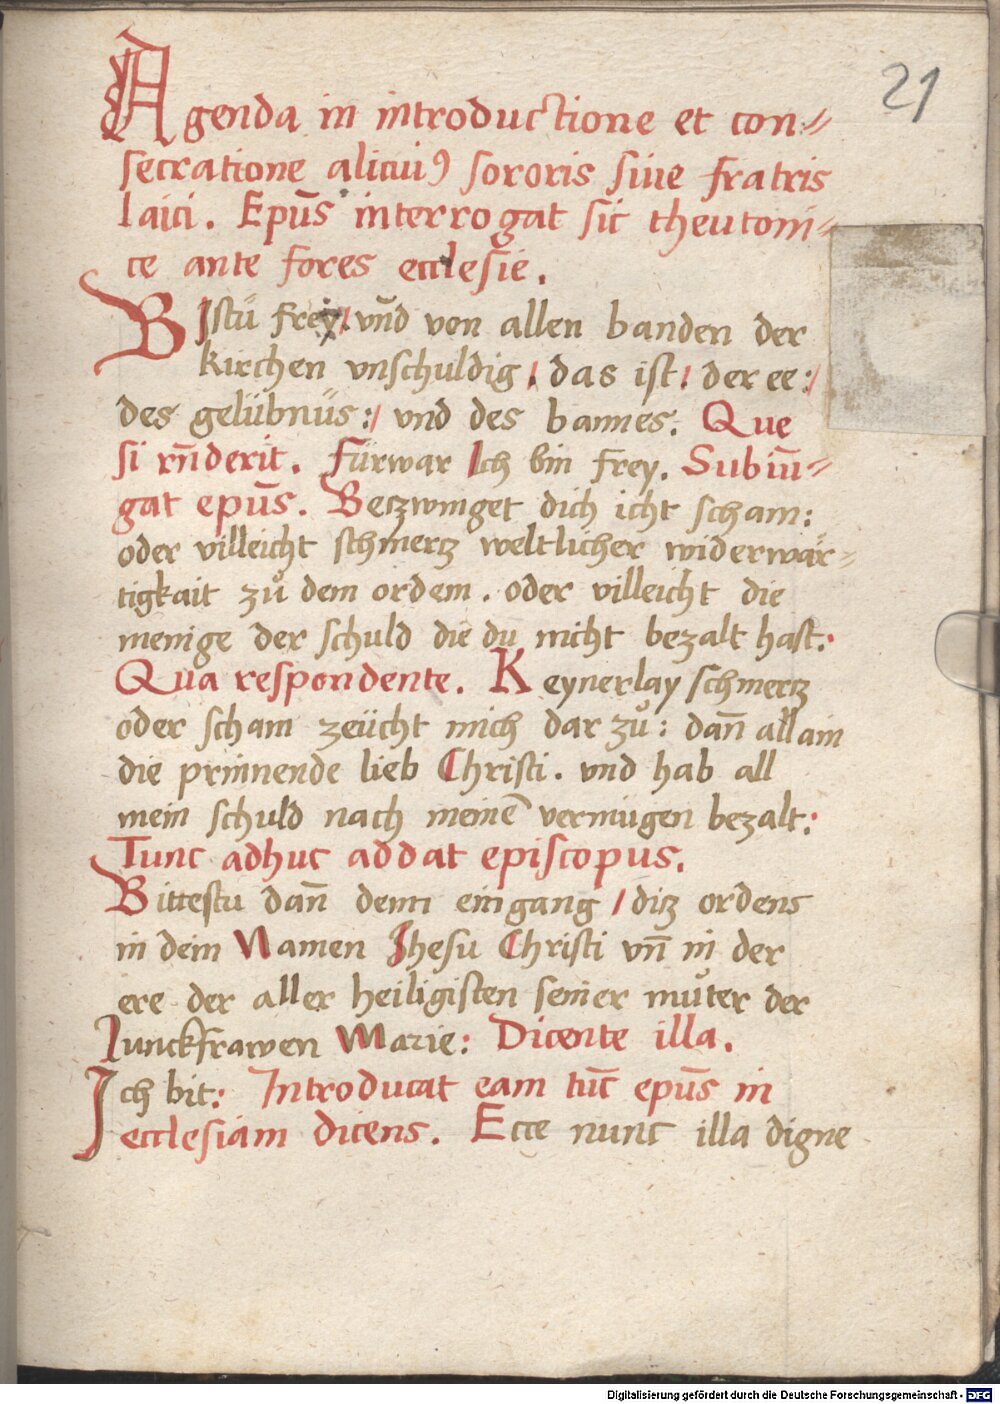 21
Agenda in introductione et con⸗
secratione alicuiꝰ sororis siue fratris
laici. Epūs interrogat sic theutoni⸗
ce ante fores ecclesie.
BIstu frey/ vñd von allen banden der
kirchen vnschuldig / das ist / der ee :/
des gelübnüs :/ vnd des bannes. Que
si rn̄derit. Fürwar Ich bin frey. Subiū⸗
gat epūs. Betzwinget dich icht scham:
oder villeicht schmertz weltlicher widerwär⸗
tigkait zů dem ordem. oder villeicht die
menige der schuld die du nicht bezalt hast.
Qua respondente. Keynerlay schmertz
oder scham zeücht mich dar zů: dan̄ allain
die prinnende lieb Christi. vnd hab all
mein schuld nach meinē vermügen bezalt:
Tunc adhuc addat episcopus.
Bittestu dan̄ denn eingang / ditz ordens
in dem Namen Jhesu Christi vn̄ in der
ere der aller heiligisten seiner můter der
Junckfrawen Marie: Dicente illa.
Ich bit: Introducat eam tūc epūs in
ecclesiam dicens. Ecce nunc illa digne
Digitalisierung gefördert durch die Deutsche Forschungsgemeinschaft - DFG